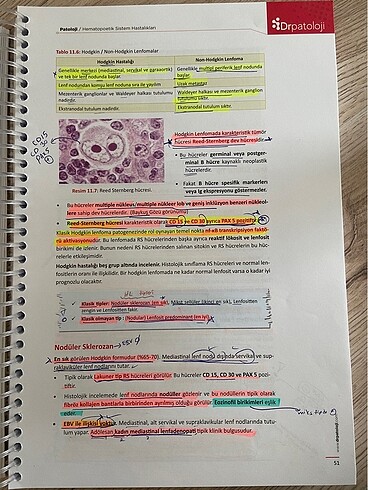 Patoloji / Hematopoetik Sistem Hastalıkları
iDrpatoloji
Tablo 11.6: Hodgkin / Non-Hodgkin Lenfomalar
Hodgkin Hastalığı
Non-Hodgkin Lenfoma
Genellikle merkezi (mediastinal, servikal ve paraaortik)
ve tek bir lenf nodunda başlar.
Genellikle multipl periferik lenf nodunda
başlar.
Lenf nodundan komşu lenf noduna sıra ile yayılım
Uzak metastaz
Mezenterik ganglionlar ve Waldeyer halkası tutulumu
nadirdir.
Waldeyer halkası ve mezenterik ganglion
tutulumu sıktır.
Ekstranodal tutulum nadirdir.
Ekstranodal tutulum sıktır.
CD15
CD30
PAX5
Resim 11.7: Reed Sternberg hücresi.
Hodgkin Lenfomada karakteristik tümör
hücresi Reed-Sternberg dev hücresidir.
• Bu hücreler germinal veya postger-
minal B hücre kaynaklı neoplastik
hücrelerdir.
• Fakat B hücre spesifik markerleri
veya Ig ekspresyonu göstermezler.
• Bu hücreler multiple nükleus/multipl nükleer lob ve geniş inklüzyon benzeri nükleol-
lere sahip dev hücrelerdir. (Baykuş Gözü görünümü)
• Reed-Sternberg hücreleri karakteristik olarak CD 15 ve CD 30 ayrıca PAX 5 pozitiftir.
Klasik Hodgkin lenfoma patogenezinde rol oynayan temel nokta nf-κB transkripsiyon faktö-
rü aktivasyonudur. Bu lenfomada RS hücrelerinden başka ayrıca reaktif lökosit ve lenfosit
birikimi de izlenir. Bunun nedeni RS hücrelerinden salınan sitokin ve RS hücrelerin bu hüc-
relerle etkileşimidir.
Hodgkin hastalığı beş grup altında incelenir. Histolojik sınıflama RS hücreleri ve normal len-
fositlerin oranı ile ilişkilidir. Bir hodgkin lenfomada ne kadar normal lenfosit varsa o kadar iyi
prognozlu olacaktır.
Klasik tipler: Nodüler sklerozan (en sık), Mikst sellüler (ikinci en sık), Lenfositten
zengin ve Lenfositten fakir.
Klasik olmayan tip : (Nodular) Lenfosit predominant (en iyi)
Nodüler Sklerozan
En sık görülen Hodgkin formudur (%65-70). Mediastinal lenf nodu dışında servikal ve sup-
raklaviküler lenf nodlarını tutar.
Tipik olarak Lakuner tip RS hücreleri görülür. Bu hücreler CD 15, CD 30 ve PAX 5 pozi-
tiftir.
Histolojik incelemede lenf nodlarında nodüller gözlenir ve bu nodüllerin tipik olarak
fibröz kollajen bantlarla birbirinden ayrılmış olduğu görülür. Eozinofil birikimleri eşlik
eder.
EBV ile ilişkisi yoktur. Mediastinal, alt servikal ve supraklavikular lenf nodlarında tutu-
lum yapar. Adölesan kadın mediastinal lenfadenopati tipik klinik bulgusudur.
51